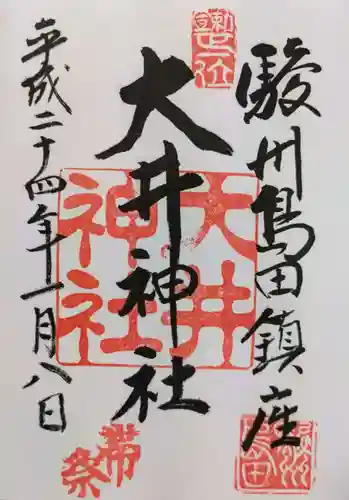 駿州島田鎮座
大井神社
平成二十四年十一月八日
大井
神社
帯
祭
駿州
島田